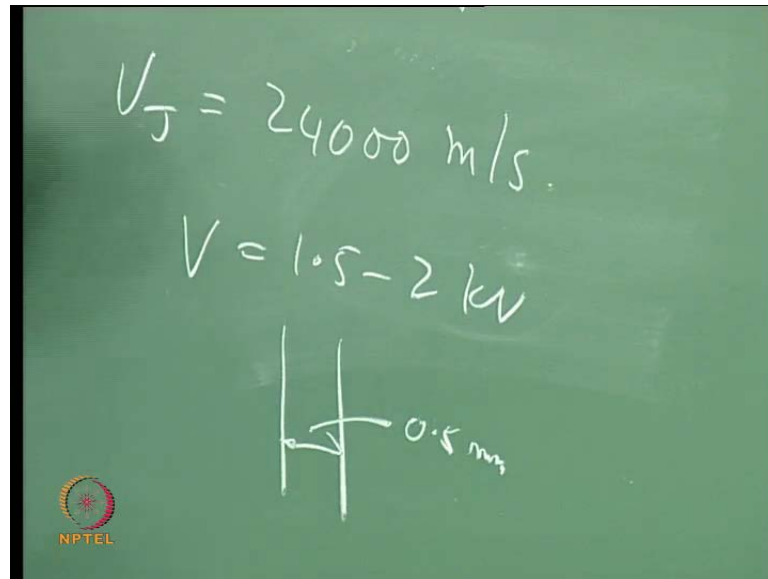 V_J = 24000 m/s.
V = 1.5 - 2 kV
0.5 mm
NPTEL